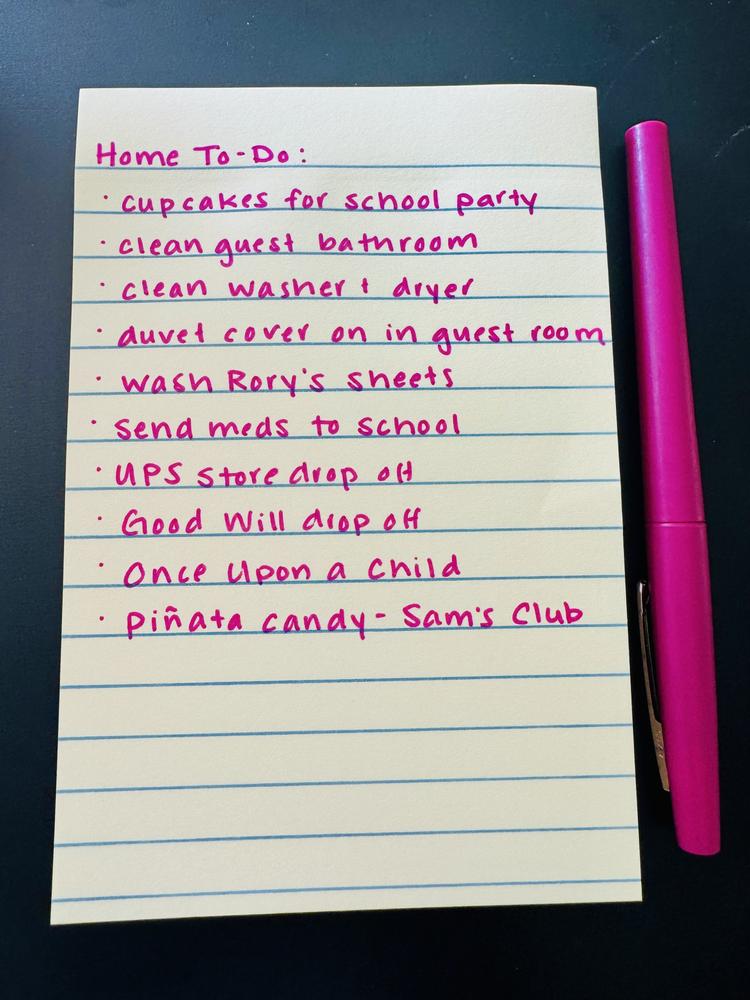 Home To-Do:
· cupcakes for school party
· clean guest bathroom
· clean washer + dryer
· duvet cover on in guest room
· wash Rory's sheets
· send meds to school
· UPS store drop off
· Good Will drop off
· Once Upon a Child
· piñata candy - Sam's Club